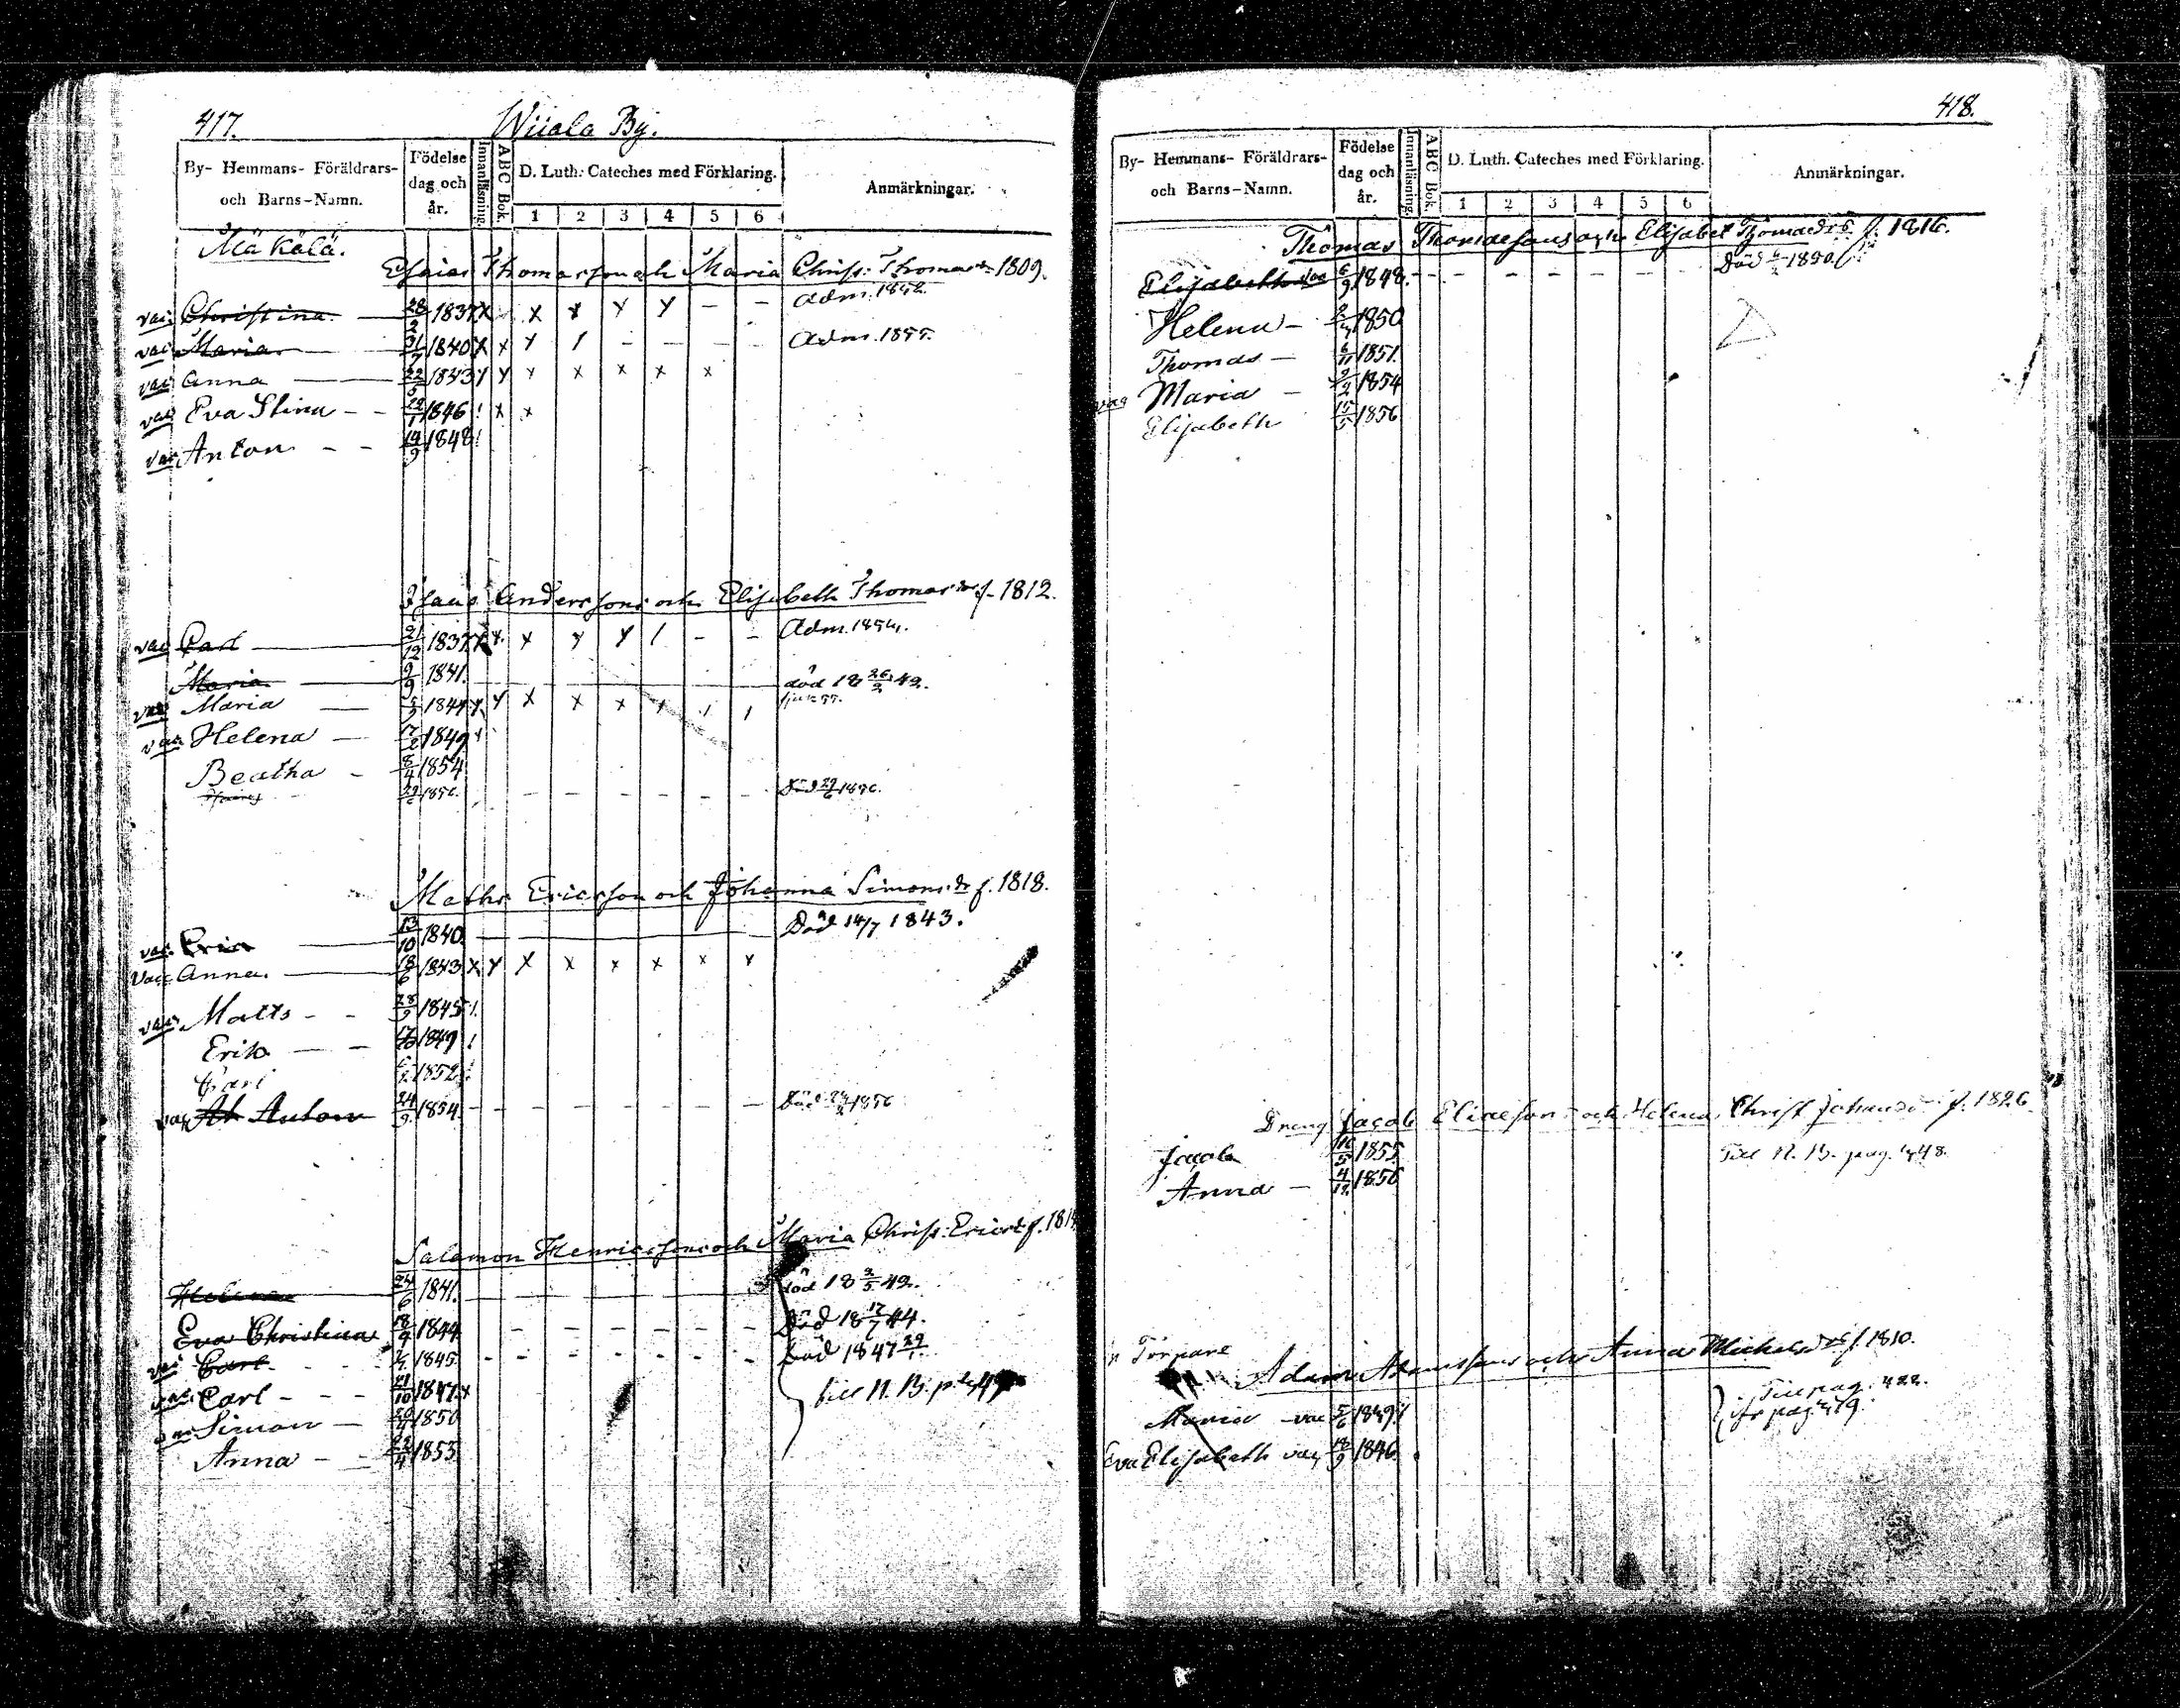 417.
Wiiala By.
By- Hemmans- Föräldrars-
och Barns-Namn.
Födelse
dag och
år.
Innanläsning.
ABC Bok.
D. Luth. Cateches med Förklaring.
1 2 3 4 5 6
Anmärkningar.
Mäkälä.
Esaias Thomasson och Maria Chris: Thomasdr 1809.
vac Christina 28/2 1837 x x x y y - - Adm. 1852.
vac Maria 31/7 1840 x x y 1 - - - - Adm. 1855.
vac Anna 1843 y y y x x x x
vac Eva Stina - - 1846 ! x x
vac Anton - - 19/9 1848 !
Isaac Andersson och Elisabeth Thomasdr f. 1812.
vac 21/12 1837 x x. x y y / - - Adm. 1854.
Maria 9/9 1841. död 18 26/2 42.
vac Maria 1844 y. y x x x
vac Helena 17/2 1849
Beatha - 8/4 1854
1856. - - - - - - Död 1856.
Matts Ericsson och Johanna Simonsdr f. 1818.
vac. Eric 13/10 1840. Död 14/7 1843.
vac Anna. 18/6 1843 x y x x x x x y
vac. Matts - - 28/9 1845 !.
Erik - - 17/10 1849 !
Carl 1852 !
vac Anton 24/9 1854 - - - - - - - Död 1856
Salamon Henricsson och Maria Chris: Ericsdr f.
Helena 24/6 1841. död 18 3/5 42.
Eva Christina 18/4 1844 - - - - - - Död 18 44.
vac Carl - - - 1845 - - - - - - Död 1847
vac Carl - - - 21/10 1847. x till N. B. p.
vac Simon - 1850
Anna - - 1853
418.
By- Hemmans- Föräldrars-
och Barns-Namn.
Födelse
dag och
år.
Innanläsning.
ABC Bok.
D. Luth. Cateches med Förklaring.
1 2 3 4 5 6
Anmärkningar.
Thomas Thomasson och Elisabet Thomasdr f. 1816.
Elisabeth vac 6/9 1848. - - - - - - - Död 1850.
Helena - 1850
Thomas - 6/11 1851.
vac Maria - 1854
Elisabeth 15/5 1856
Dreng Jacob Eliasson och Helena Christ Johansdr f. 1826.
Jacob 16/5 1855 Till N. B. pag. 448.
Anna - 4/12 1856
Torpare
Adam Adamsson och Anna Michelsdr f. 1810.
Maria - vac 5/6 1849 ! Till pag. 422.
ifr pag 419.
Eva Elisabeth vac 18/9 1846.